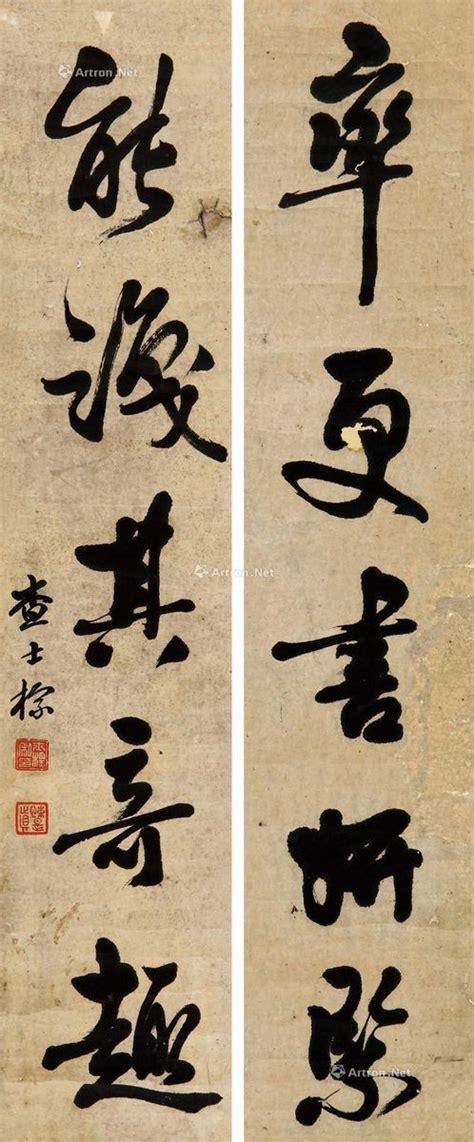 率更書妍緊
能識其奇趣
查士標
Artron.Net
Artron.Net
Artron.Net